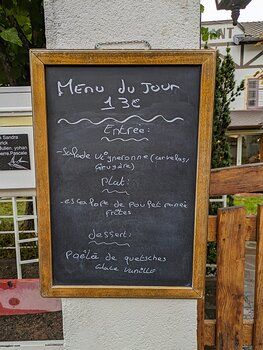 Menu du Jour
13€
Entrée:
-Salade vigneronne (cervelas/
gruyère)
Plat:
-escalope de poulet panée
frites
dessert:
Poêlée de quetsches
Glace vanille
Sandra
yohan